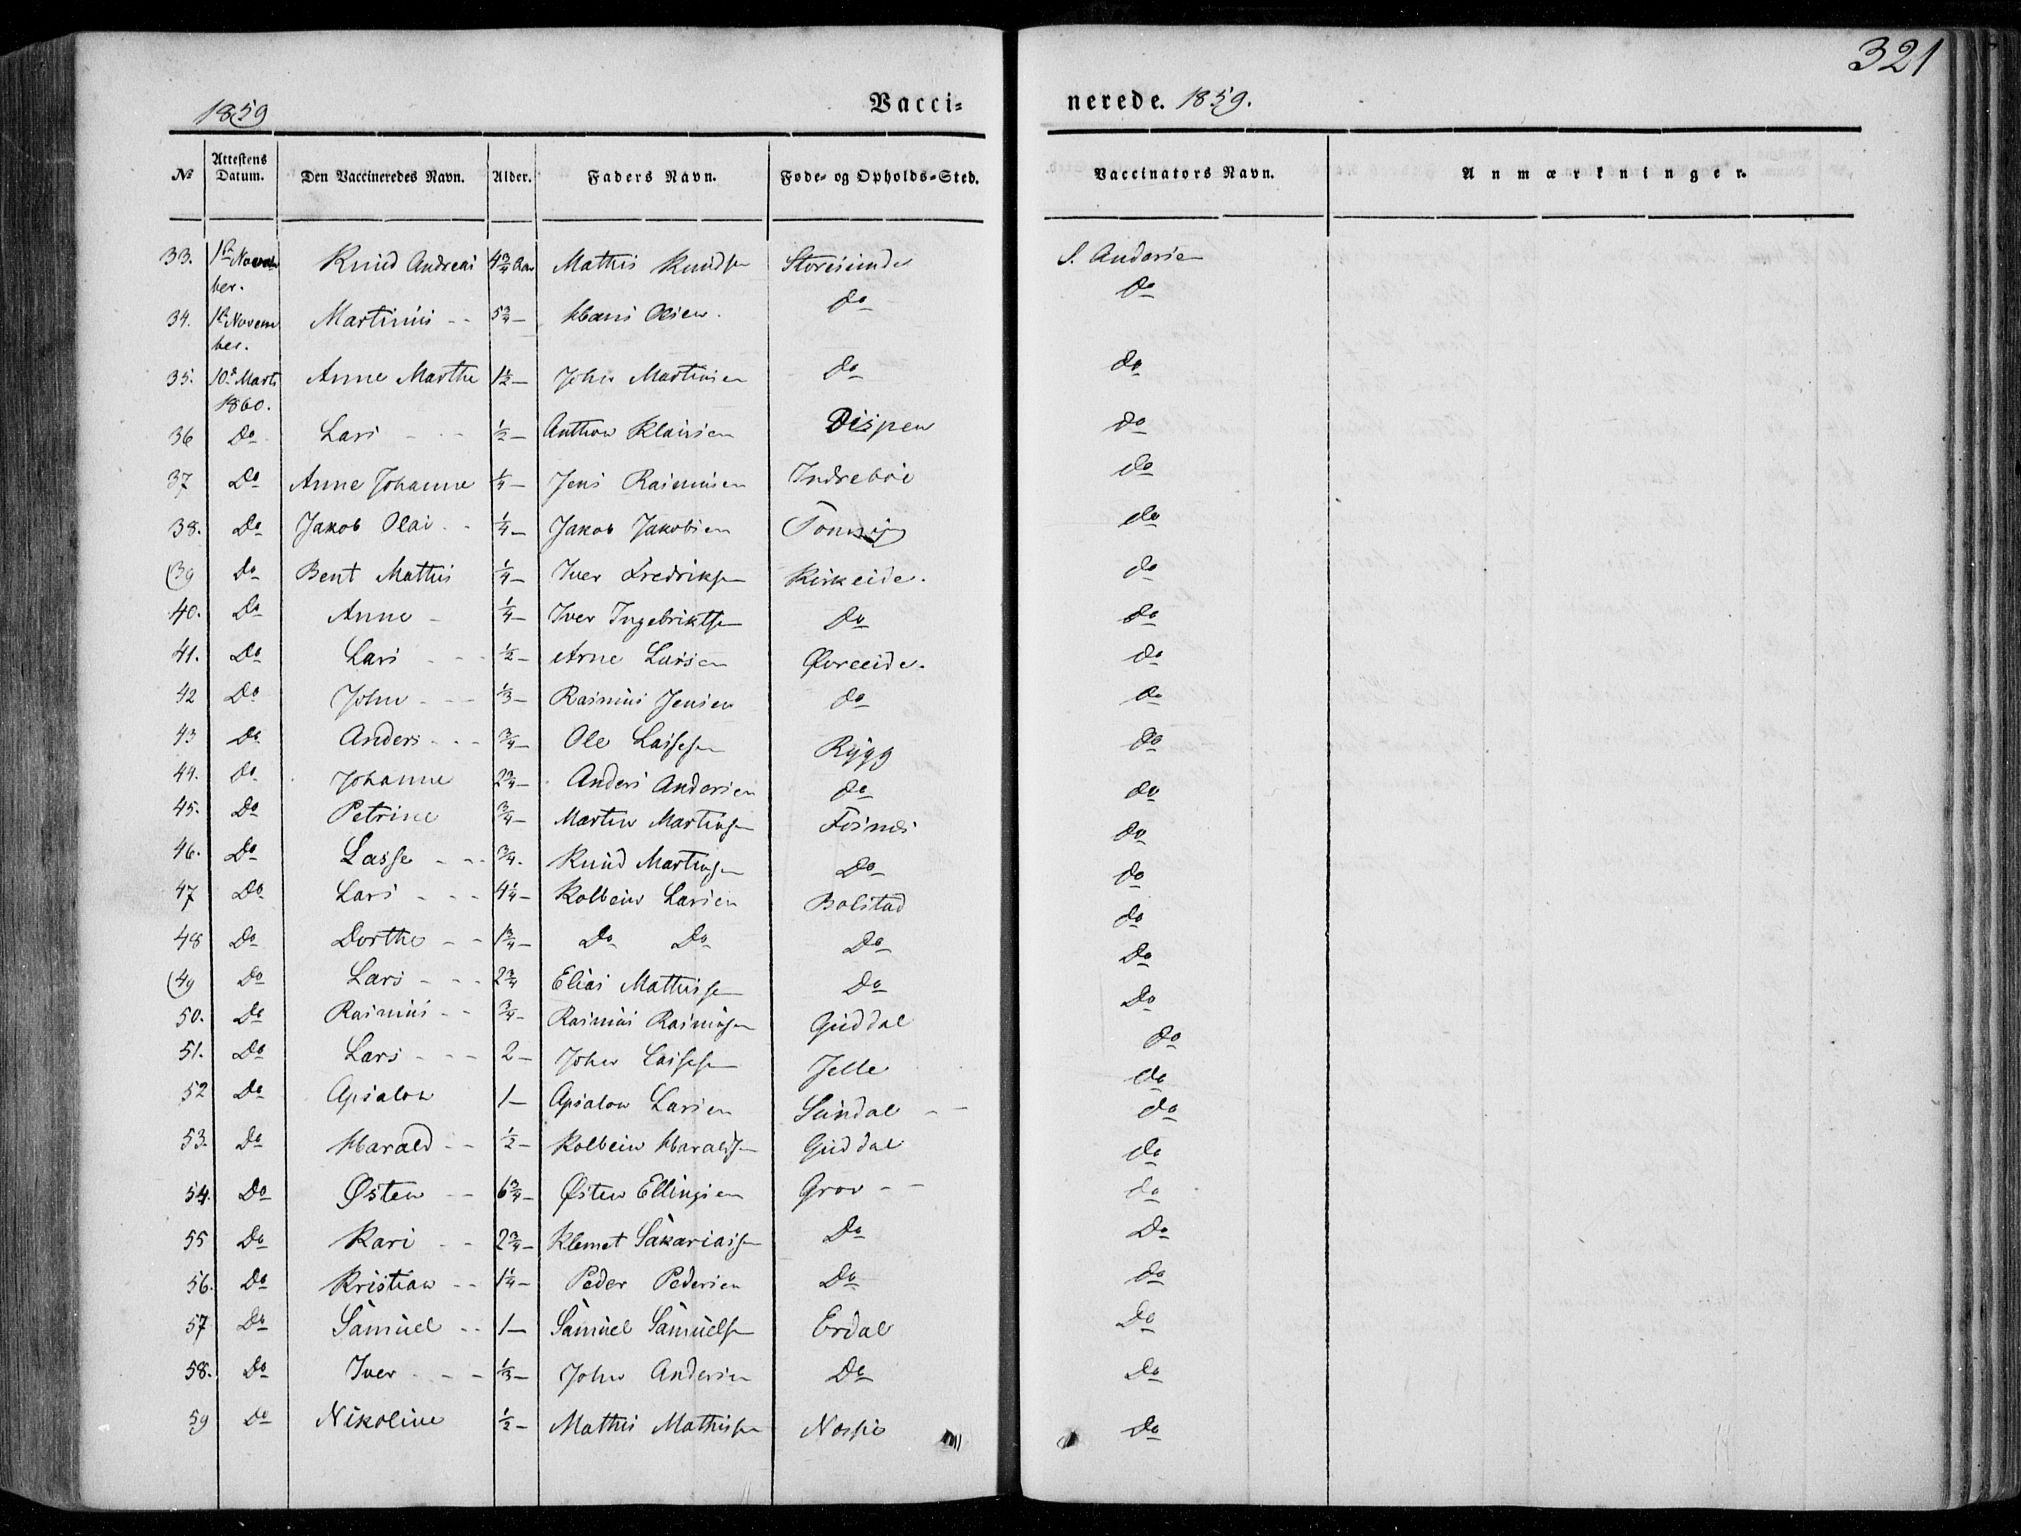 321
1859 Vacci- nerede. 1859.
No Attestens Datum. Den Vaccineredes Navn. Alder. Faders Navn. Føde- og Opholds-Sted. Vaccinators Navn. Anmærkninger.
33. 1ste Novem Knud Andreas 4 3/4 Aar Mathis Knudsen S. Andersen
ber.
34. 1ste Novem Martinus - - 5 3/4 - Hans Olsen. do do
ber.
35. 10de Marts Anne Marthe 1 1/2 - John Martinsen do do
1860.
36 Do Lars - - 1/2 - Anthon Klausen Dispen do
37 Do Anne Johanne 1/4 - Jens Rasmusen Indrebøe do
38. Do Jakob Olai - - 1/4 - Jakob Jakobsen do
39 Do Bent Mathis 1/4 - Iver Fredriksen Kirkeide. do
40. Do Anne - 1/4 - Iver Ingebriktsen do do
41. Do Lars - - 1/2 - Arne Larsen Øvreeide. do
42 Do John - - - 1/3 - Rasmus Jensen do do
43 Do Anders - - - 3/4 - Ole Lassesen Rygg do
44. Do Johanne 2 3/4 - Anders Andersen do do
45. Do Petrine 3/4 - Marten Martinsen Fosnæs do
46. Do Lasse - - - 3/4. Knud Martinsen Do do
47 Do Lars - - - 4 1/4 - Kolbein Larsen Bolstad do
48 Do Dorthe - - 1 3/4 - Do Do Do Do
49 Do Lars - - - 2 3/4 Elias Mathissen Do Do
50. Do Rasmus - - 3/4 - Rasmus Rasmusen Guddal do
51. Do Lars - - - 2 - John Lassesen Jelle do
52 Do Apsalon 1 - Apsalon Larsen Sundal - - do
53. Do Harald - - 1/2 - Kolbein Haraldsen Guddal do
54. Do Østen - - 6 3/4 - Østen Ellingsen Grov - - do
55 Do Kari - - 2 3/4 - Klemet Sakariassen Do Do
56. Do Kristian - - 1 1/4 - Peder Pedersen Do do
57 Do Samuel - - 1 - Samuel Samuelsen Erdal Do
58. Do Iver - - - 1/3 - John Andersen Do Do
59 Do Nikoline 1/2 - Mathis Mathissen Do